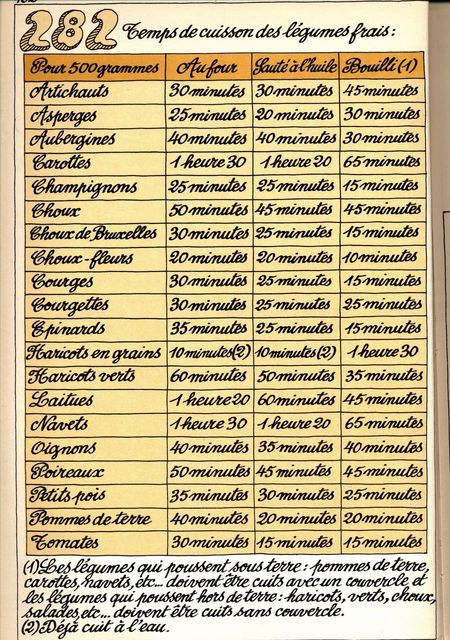 282 Temps de cuisson des légumes frais:
Pour 500 grammes Au four Sauté à l'huile Bouilli (1)
Artichauts 30 minutes 30 minutes 45 minutes
Asperges 25 minutes 20 minutes 30 minutes
Aubergines 40 minutes 40 minutes 30 minutes
Carottes 1 heure 30 1 heure 20 65 minutes
Champignons 25 minutes 25 minutes 15 minutes
Choux 50 minutes 45 minutes 45 minutes
Choux de Bruxelles 30 minutes 25 minutes 15 minutes
Choux-fleurs 20 minutes 20 minutes 10 minutes
Courges 30 minutes 25 minutes 15 minutes
Courgettes 30 minutes 25 minutes 25 minutes
Epinards 35 minutes 25 minutes 15 minutes
Haricots en grains 10 minutes (2) 10 minutes (2) 1 heure 30
Haricots verts 60 minutes 50 minutes 35 minutes
Laitues 1 heure 20 60 minutes 45 minutes
Navets 1 heure 30 1 heure 20 65 minutes
Oignons 40 minutes 35 minutes 40 minutes
Poireaux 50 minutes 45 minutes 45 minutes
Petits pois 35 minutes 30 minutes 25 minutes
Pommes de terre 40 minutes 20 minutes 20 minutes
Tomates 30 minutes 15 minutes 15 minutes
(1) Les légumes qui poussent sous terre: pommes de terre,
carottes, navets, etc... doivent être cuits avec un couvercle et
les légumes qui poussent hors de terre: haricots, verts, choux,
salades, etc... doivent être cuits sans couvercle.
(2) Déjà cuit à l'eau.